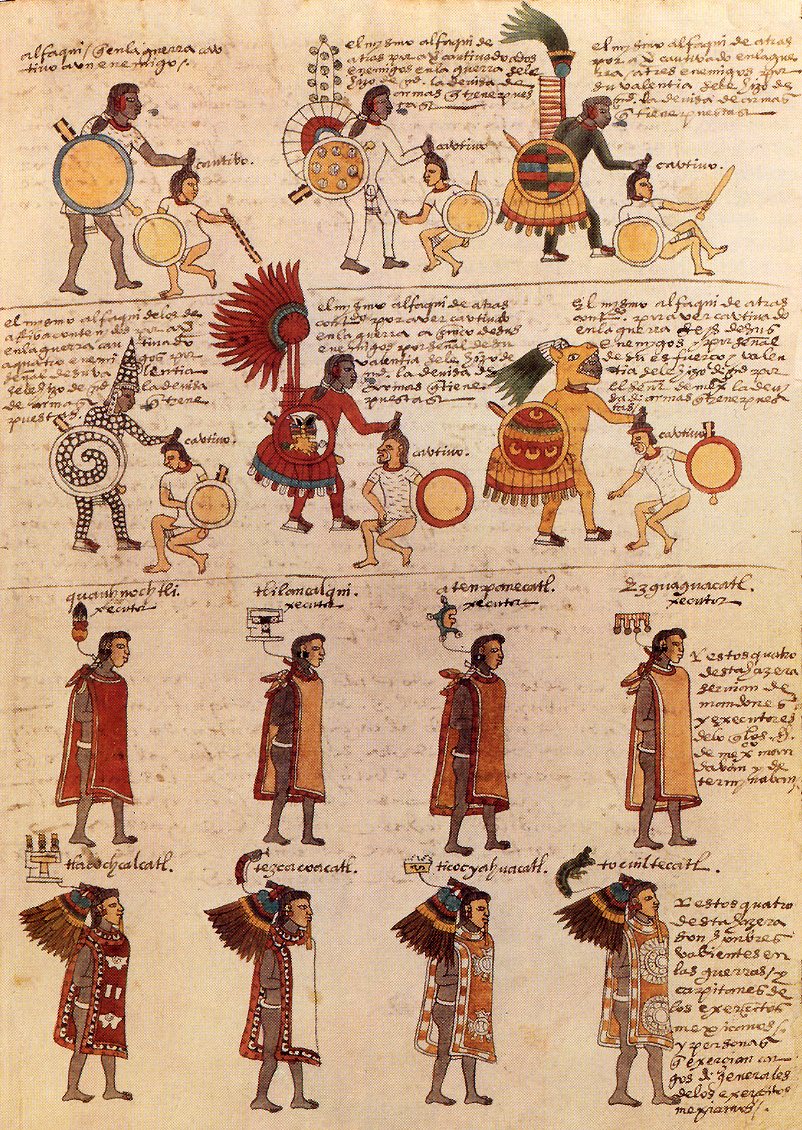 alfaqui / q̃ en la guerra cau
tivo a un enemigo /.
cautivo.
el mismo alfaqui de
atras por aver cautivado dos
enemigos en la guerra de le
hizo de la devisa de
armas q̃ tiene pues
tas
cautivo
el mismo alfaqui de atras
por aver cautivado en la gue
rra, a tres enemigos por
su valentia se le hizo de
la devisa de armas
q̃ tiene puestas
cautivo.
el mismo alfaqui de los de
atras contenidos por
en la guerra cautivado
a quatro enemigos por
de su valentia
la devisa
de armas q̃ tiene
puestas
cautivo.
el mismo alfaqui de atras
por aver cautivado
en la guerra a cinco de sus
enemigos por señal de su
valentia se le hizo de
la devisa de
armas q̃ tiene
puestas
cautivo.
El mismo alfaqui de atras
por aver cautivado
en la guerra seis de sus
enemigos y por señal
de su esfuerço / y valen
tia se le hizo por
el señor de mexico la devi
sa de armas q̃ tiene pues
tas
cautivo
quauhnochtli.
xecutor
tlilancalqui.
xecutor
atenpanecatl.
xecutor
Ezguaguacatl.
xecutor
Y estos quatro
desta hazera
servian de
mandones
y executores
de lo q̃ los sres
de mexico man
davan y de
terminavan
tlacochcalcatl.
tezcacoacatl.
ticocyahuacatl.
tocuiltecatl.
Y estos quatro
desta hazera
son honbres
valientes en
las guerras / y
capitanes de
los exerçitos
mexicanos /
y personas
q̃ exerçian car
gos de generales
de los exerçitos
mexicanos /.